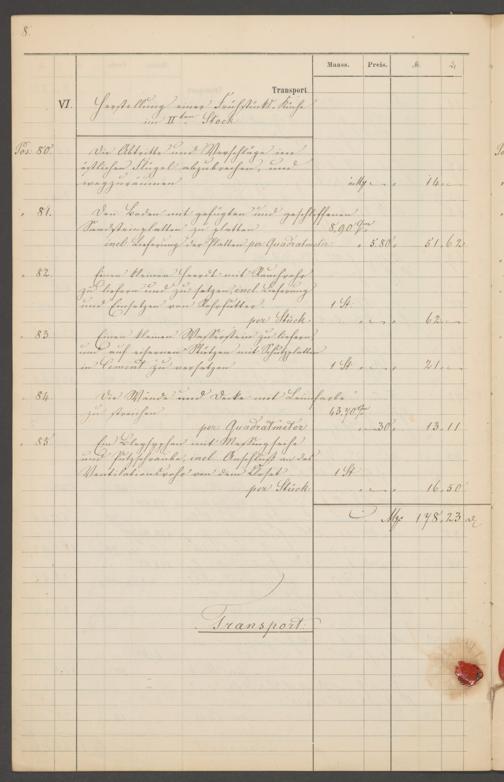 8.
Maass. Preis. M. d.
Transport
VI. Herstellung einer Frühstücks-Küche
im IIten Stock
Pos. 80. Die Abtritte und Verschläge im
östlichen Flügel abzubrechen, und
wegzuräumen 14
" 81. Den Boden mit gefügten und geschliffenen
Sandsteinplatten zu platten 8,90
incl. Lieferung der Platten per Quadratmeter 5 80 51. 62
" 82. Einen kleinen Heerdt mit Rauchrohr
zu liefern und zu setzen, incl. Lieferung
und Einsetzen von Rohrfutter 1 St.
per Stück 62
" 83. Einen kleinen Wasserstein zu liefern
und auf eisernen Stützen mit Schutzplatten
in Cement zu versetzen 1 St. 21
" 84. Die Wände und Decke mit Leimfarbe
zu streichen 43,70
per Quadratmeter 30 13. 11
" 85. Ein Bleysyphon mit Messingseihe
und Putzschraube, incl. Anschluß an das
Ventilationsrohr von dem Closet 1 St.
per Stück 16. 50
178. 23
Transport